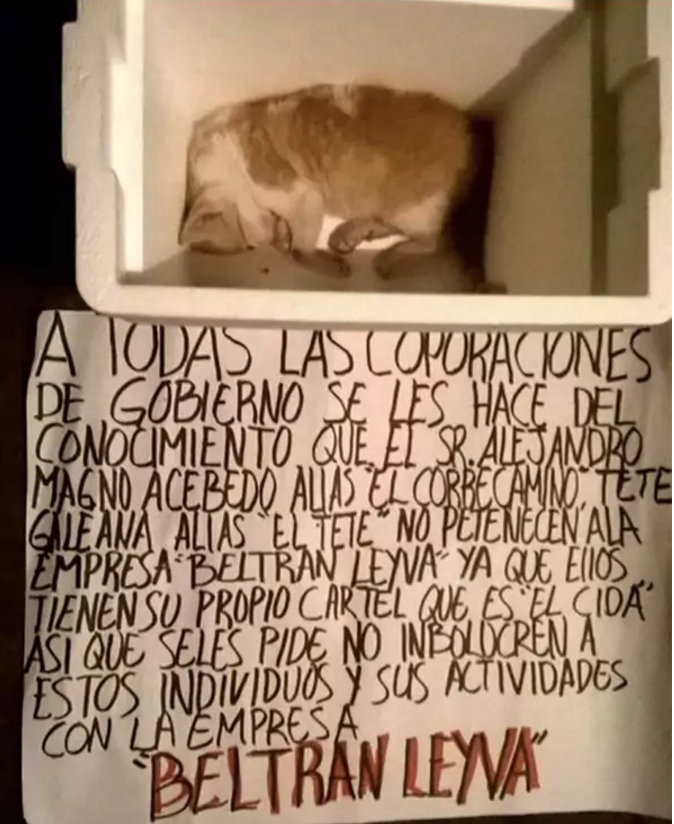 A TODAS LAS COPORACIONES
DE GOBIERNO SE LES HACE DEL
CONOCIMIENTO QUE EL SR. ALEJANDRO
MAGNO ACEBEDO ALIAS "EL CORRECAMINO," TETE
GALEANA ALIAS "EL TETE" NO PETENECEN ALA
EMPRESA "BELTRAN LEYVA" YA QUE EllOS
TIENEN SU PROPIO CARTEL QUE ES "EL CIDA"
ASI QUE SELES PIDE NO INBOLUCREN A
ESTOS INDIVIDUOS Y SUS ACTIVIDADES
CON LA EMPRESA
"BELTRAN LEYVA"